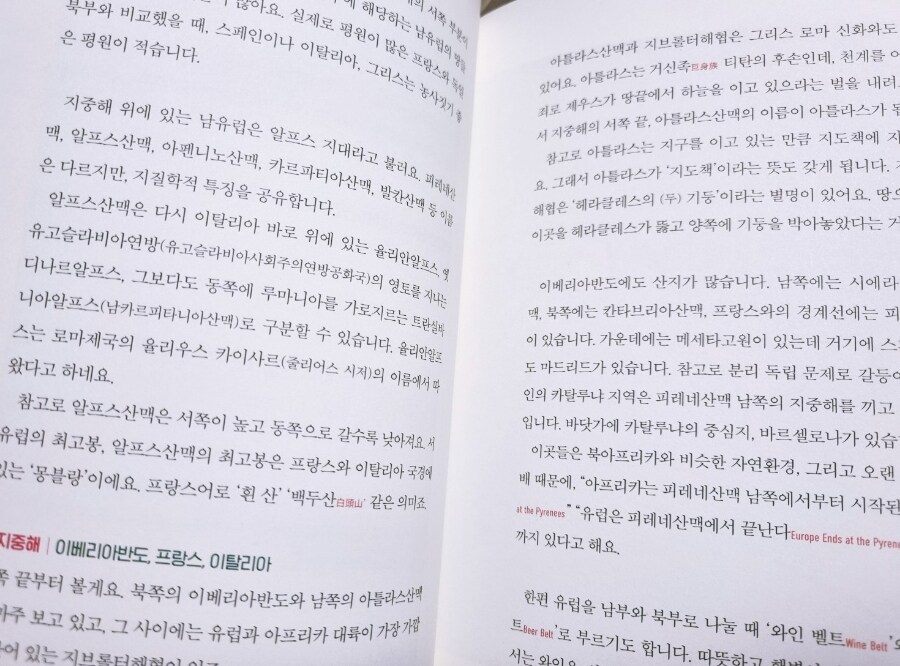 에 해당하는 남유럽의 땅들
북부와 비교했을 때, 스페인이나 이탈리아, 그리스는 농사짓기 좋
은 평원이 적습니다.
지중해 위에 있는 남유럽은 알프스 지대라고 불러요. 피레네산
맥, 알프스산맥, 아펜니노산맥, 카르파티아산맥, 발칸산맥 등 이름
은 다르지만, 지질학적 특징을 공유합니다.
알프스산맥은 다시 이탈리아 바로 위에 있는 율리안알프스, 옛
유고슬라비아연방(유고슬라비아사회주의연방공화국)의 영토를 지나는
디나르알프스, 그보다도 동쪽에 루마니아를 가로지르는 트란실바
니아알프스(남카르피타니아산맥)로 구분할 수 있습니다. 율리안알프
스는 로마제국의 율리우스 카이사르(줄리어스 시저)의 이름에서 따
왔다고 하네요.
참고로 알프스산맥은 서쪽이 높고 동쪽으로 갈수록 낮아져요. 서
유럽의 최고봉, 알프스산맥의 최고봉은 프랑스와 이탈리아 국경에
있는 '몽블랑'이에요. 프랑스어로 '흰 산' '백두산白頭山' 같은 의미죠.
지중해 | 이베리아반도, 프랑스, 이탈리아
쪽 끝부터 볼게요. 북쪽의 이베리아반도와 남쪽의 아틀라스산맥
마주 보고 있고, 그 사이에는 유럽과 아프리카 대륙이 가장 가깝
있는 지브롤터해협이
아틀라스산맥과 지브롤터해협은 그리스 로마 신화와도
있어요. 아틀라스는 거신족巨身族 티탄의 후손인데, 천계를 어
죄로 제우스가 땅끝에서 하늘을 이고 있으라는 벌을 내려
서 지중해의 서쪽 끝, 아틀라스산맥의 이름이 아틀라스가 됩
참고로 아틀라스는 지구를 이고 있는 만큼 지도책에 자
요. 그래서 아틀라스가 '지도책'이라는 뜻도 갖게 됩니다.
해협은 '헤라클레스의 (두) 기둥'이라는 별명이 있어요. 땅으
이곳을 헤라클레스가 뚫고 양쪽에 기둥을 박아놓았다는 거
이베리아반도에도 산지가 많습니다. 남쪽에는 시에라
맥, 북쪽에는 칸타브리아산맥, 프랑스와의 경계선에는 피
이 있습니다. 가운데에는 메세타고원이 있는데 거기에 스
도 마드리드가 있습니다. 참고로 분리 독립 문제로 갈등이
인의 카탈루냐 지역은 피레네산맥 남쪽의 지중해를 끼고
입니다. 바닷가에 카탈루냐의 중심지, 바르셀로나가 있습
이곳들은 북아프리카와 비슷한 자연환경, 그리고 오랜
배 때문에, "아프리카는 피레네산맥 남쪽에서부터 시작된
at the Pyrenees" "유럽은 피레네산맥에서 끝난다Europe Ends at the Pyrene
까지 있다고 해요.
한편 유럽을 남부와 북부로 나눌 때 '와인 벨트Wine Belt'와
트Beer Belt'로 부르기도 합니다. 따뜻하고
서는 와인